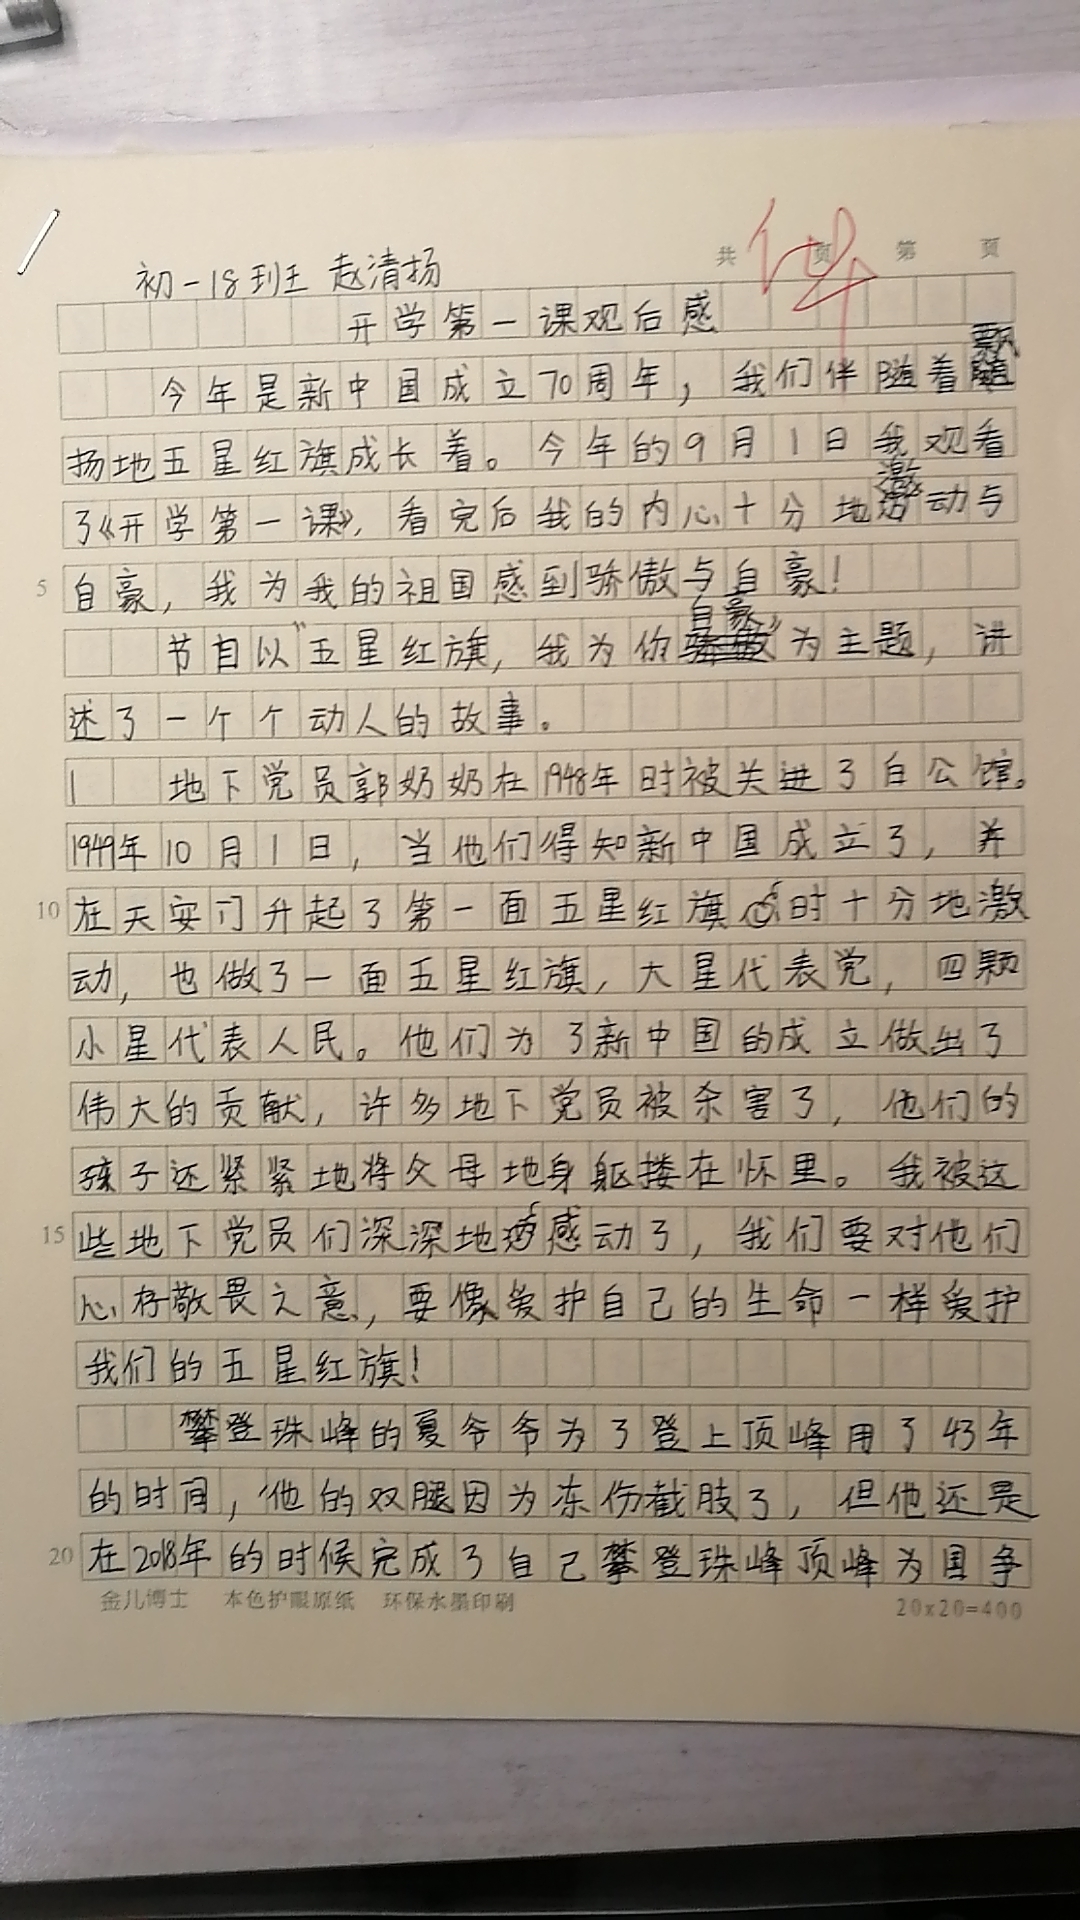 共 页 第 页
初一18班 赵清扬
开学第一课观后感
今年是新中国成立70周年，我们伴随着飘
扬地五星红旗成长着。今年的9月1日我观看
了《开学第一课》，看完后我的内心十分地激动与
5 自豪，我为我的祖国感到骄傲与自豪！
节目以“五星红旗，我为你自豪”为主题，讲
述了一个个动人的故事。
地下党员郭奶奶在1948年时被关进了白公馆。
1949年10月1日，当他们得知新中国成立了，并
10 在天安门升起了第一面五星红旗时十分地激
动，也做了一面五星红旗，大星代表党，四颗
小星代表人民。他们为了新中国的成立做出了
伟大的贡献，许多地下党员被杀害了，他们的
孩子还紧紧地将父母地身躯搂在怀里。我被这
15 些地下党员们深深地感动了，我们要对他们
心存敬畏之意，要像爱护自己的生命一样爱护
我们的五星红旗！
攀登珠峰的夏爷爷为了登上顶峰用了43年
的时间，他的双腿因为冻伤截肢了，但他还是
20 在2018年的时候完成了自己攀登珠峰顶峰为国争
金儿博士 本色护眼原纸 环保水墨印刷 20x20=400